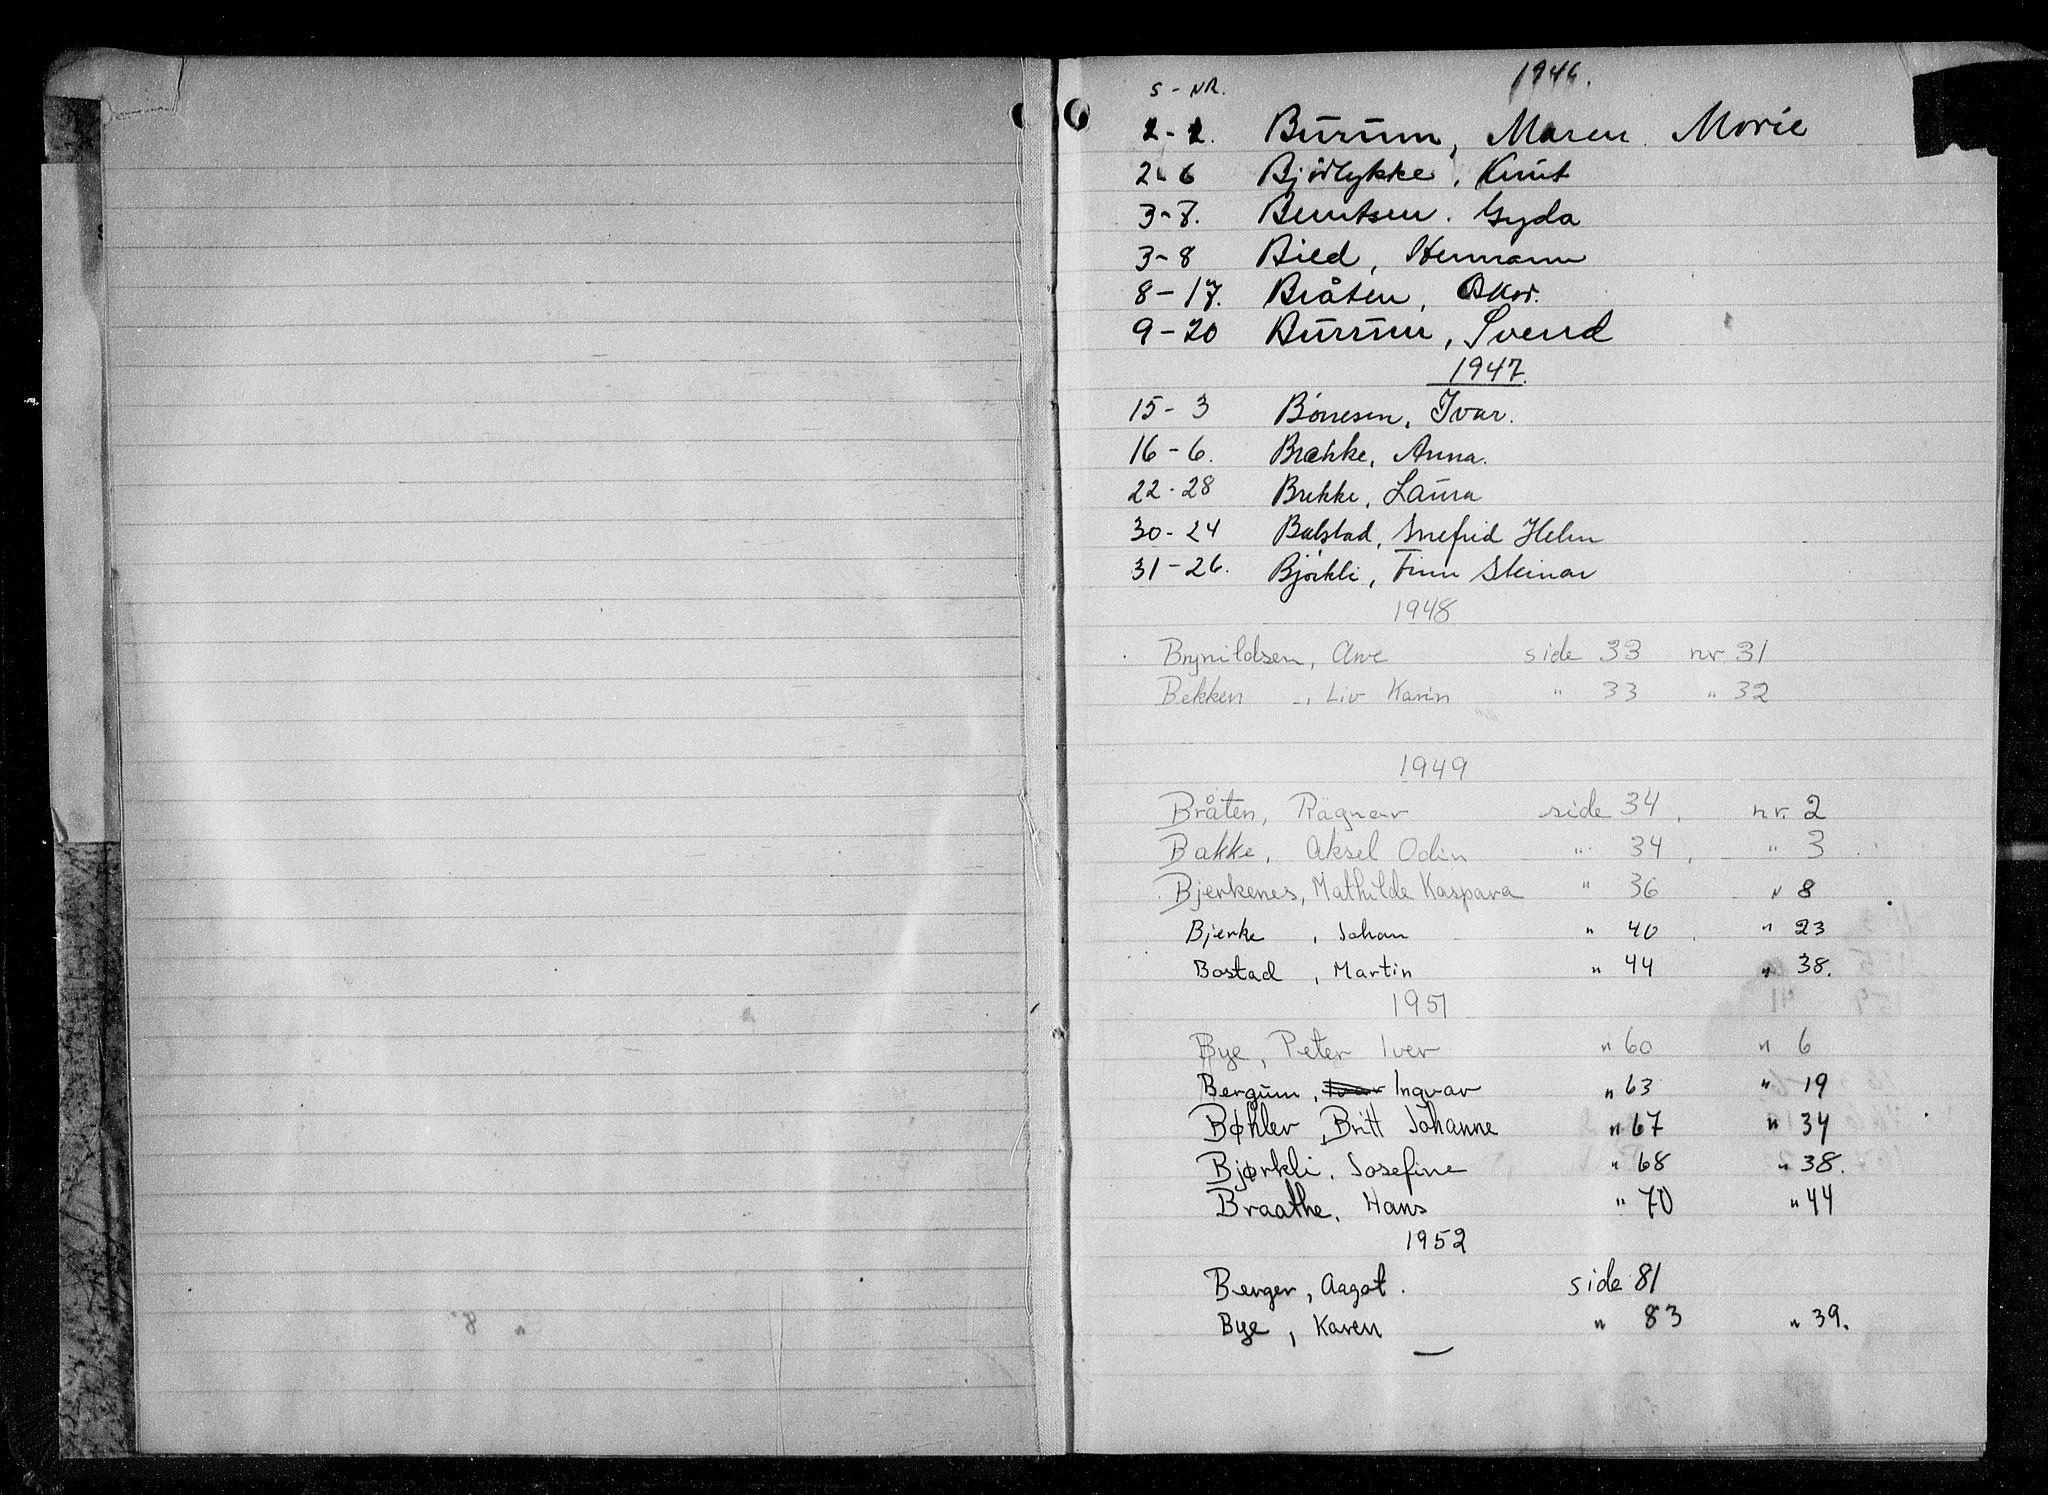 1946.
S - NR.
2. Burum, Maren Marie
2 - 6 Bjørlykke, Knut
3 - 7. Berntsen. Gyda
3 - 8 Bied, Hermann
8 - 17. Bråten,
9 - 20 Burum, Svend
1947.
15 - 3 Børresen, Ivar.
16 - 6. Brække, Anna.
22 - 28 Brekke, Laura
30 - 24 Balstad, Snefrid Helen
31 - 26. Bjørkli, Finn Steinar
1948
Brynildsen, Arve side 33 nr. 31
Bekken , Liv Karin " 33 " 32
1949
Bråten, Ragnar side 34 nr. 2
Bakke, Aksel Odin " 34 " 3
Bjerkenes, Mathilde Kaspara " 36 " 8
Bjerke , Johan " 40 " 23
Bostad , Martin " 44 " 38.
1951
Bye, Peter Iver " 60 " 6
Bergum, Ivar Ingvar " 63 " 19
Bøhler, Britt Johanne " 67 " 34
Bjørkli, Josefine " 68 " 38.
Braathe, Hans " 70 " 44
1952
Berger, Aagot. side 81
Bye, Karen " 83 " 39.